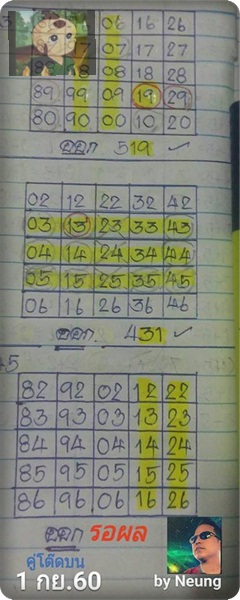 06 16 26
07 17 27
08 18 28
89 99 09 19 29
80 90 00 10 20
ออก 519 ✓
02 12 22 32 42
03 13 23 33 43
04 14 24 34 44
05 15 25 35 45
06 16 26 36 46
ออก 431 ✓
82 92 02 12 22
83 93 03 13 23
84 94 04 14 24
85 95 05 15 25
86 96 06 16 26
ออก รอผล
คู่โต๊ดบน
1 กย.60
by Neung